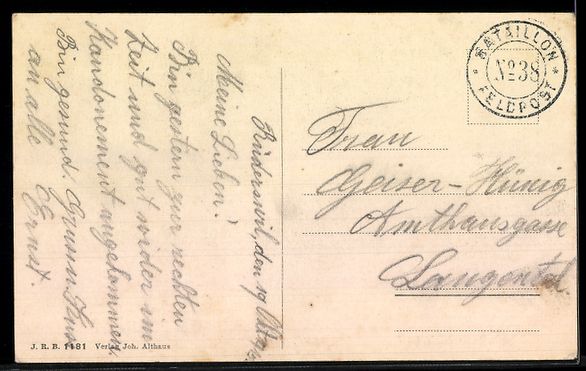 BATAILLON
No 38
FELDPOST
Rüderswil, den 19.
Meine Lieben!
Bin gestern zur rechten
Zeit und gut wider im
Kandonement angekommen.
Bin gesund. Gruss u. Kuss
an alle Ernst.
Frau
Geiser-Hünig
Amthausgasse
Langental
J. R. B. 1181 Verlag Joh. Althaus